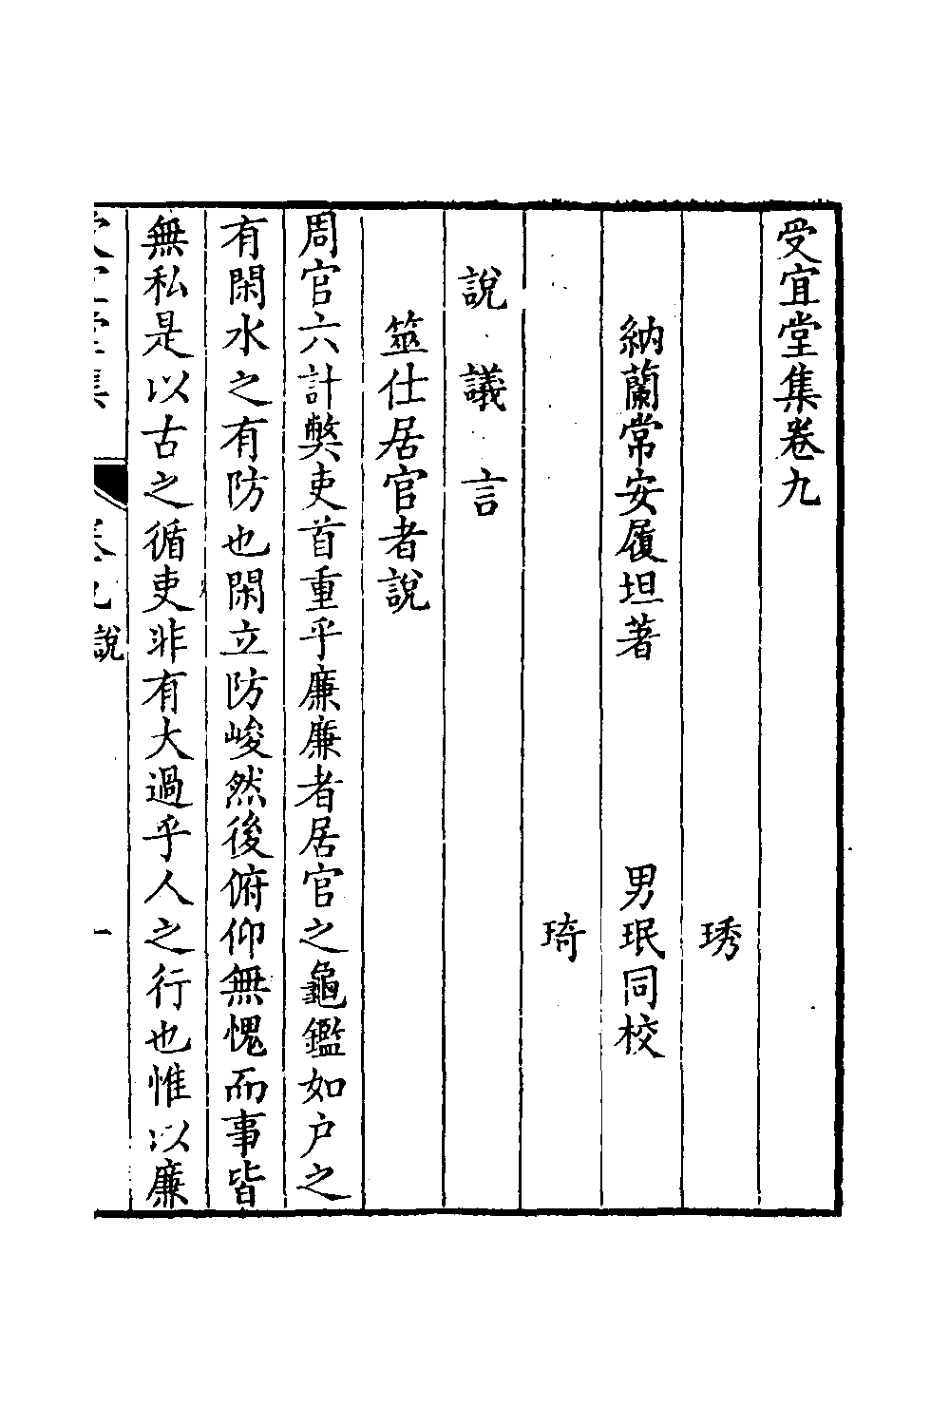 受宜堂集卷九
琇
納蘭常安履坦著　男珉同校
琦
說　議　言
筮仕居官者說
周官六計弊吏首重乎廉廉者居官之龜鑑如户之
有閑水之有防也閑立防峻然後俯仰無愧而事皆
無私是以古之循吏非有大過乎人之行也惟以廉
受宜堂集　卷九　說　一